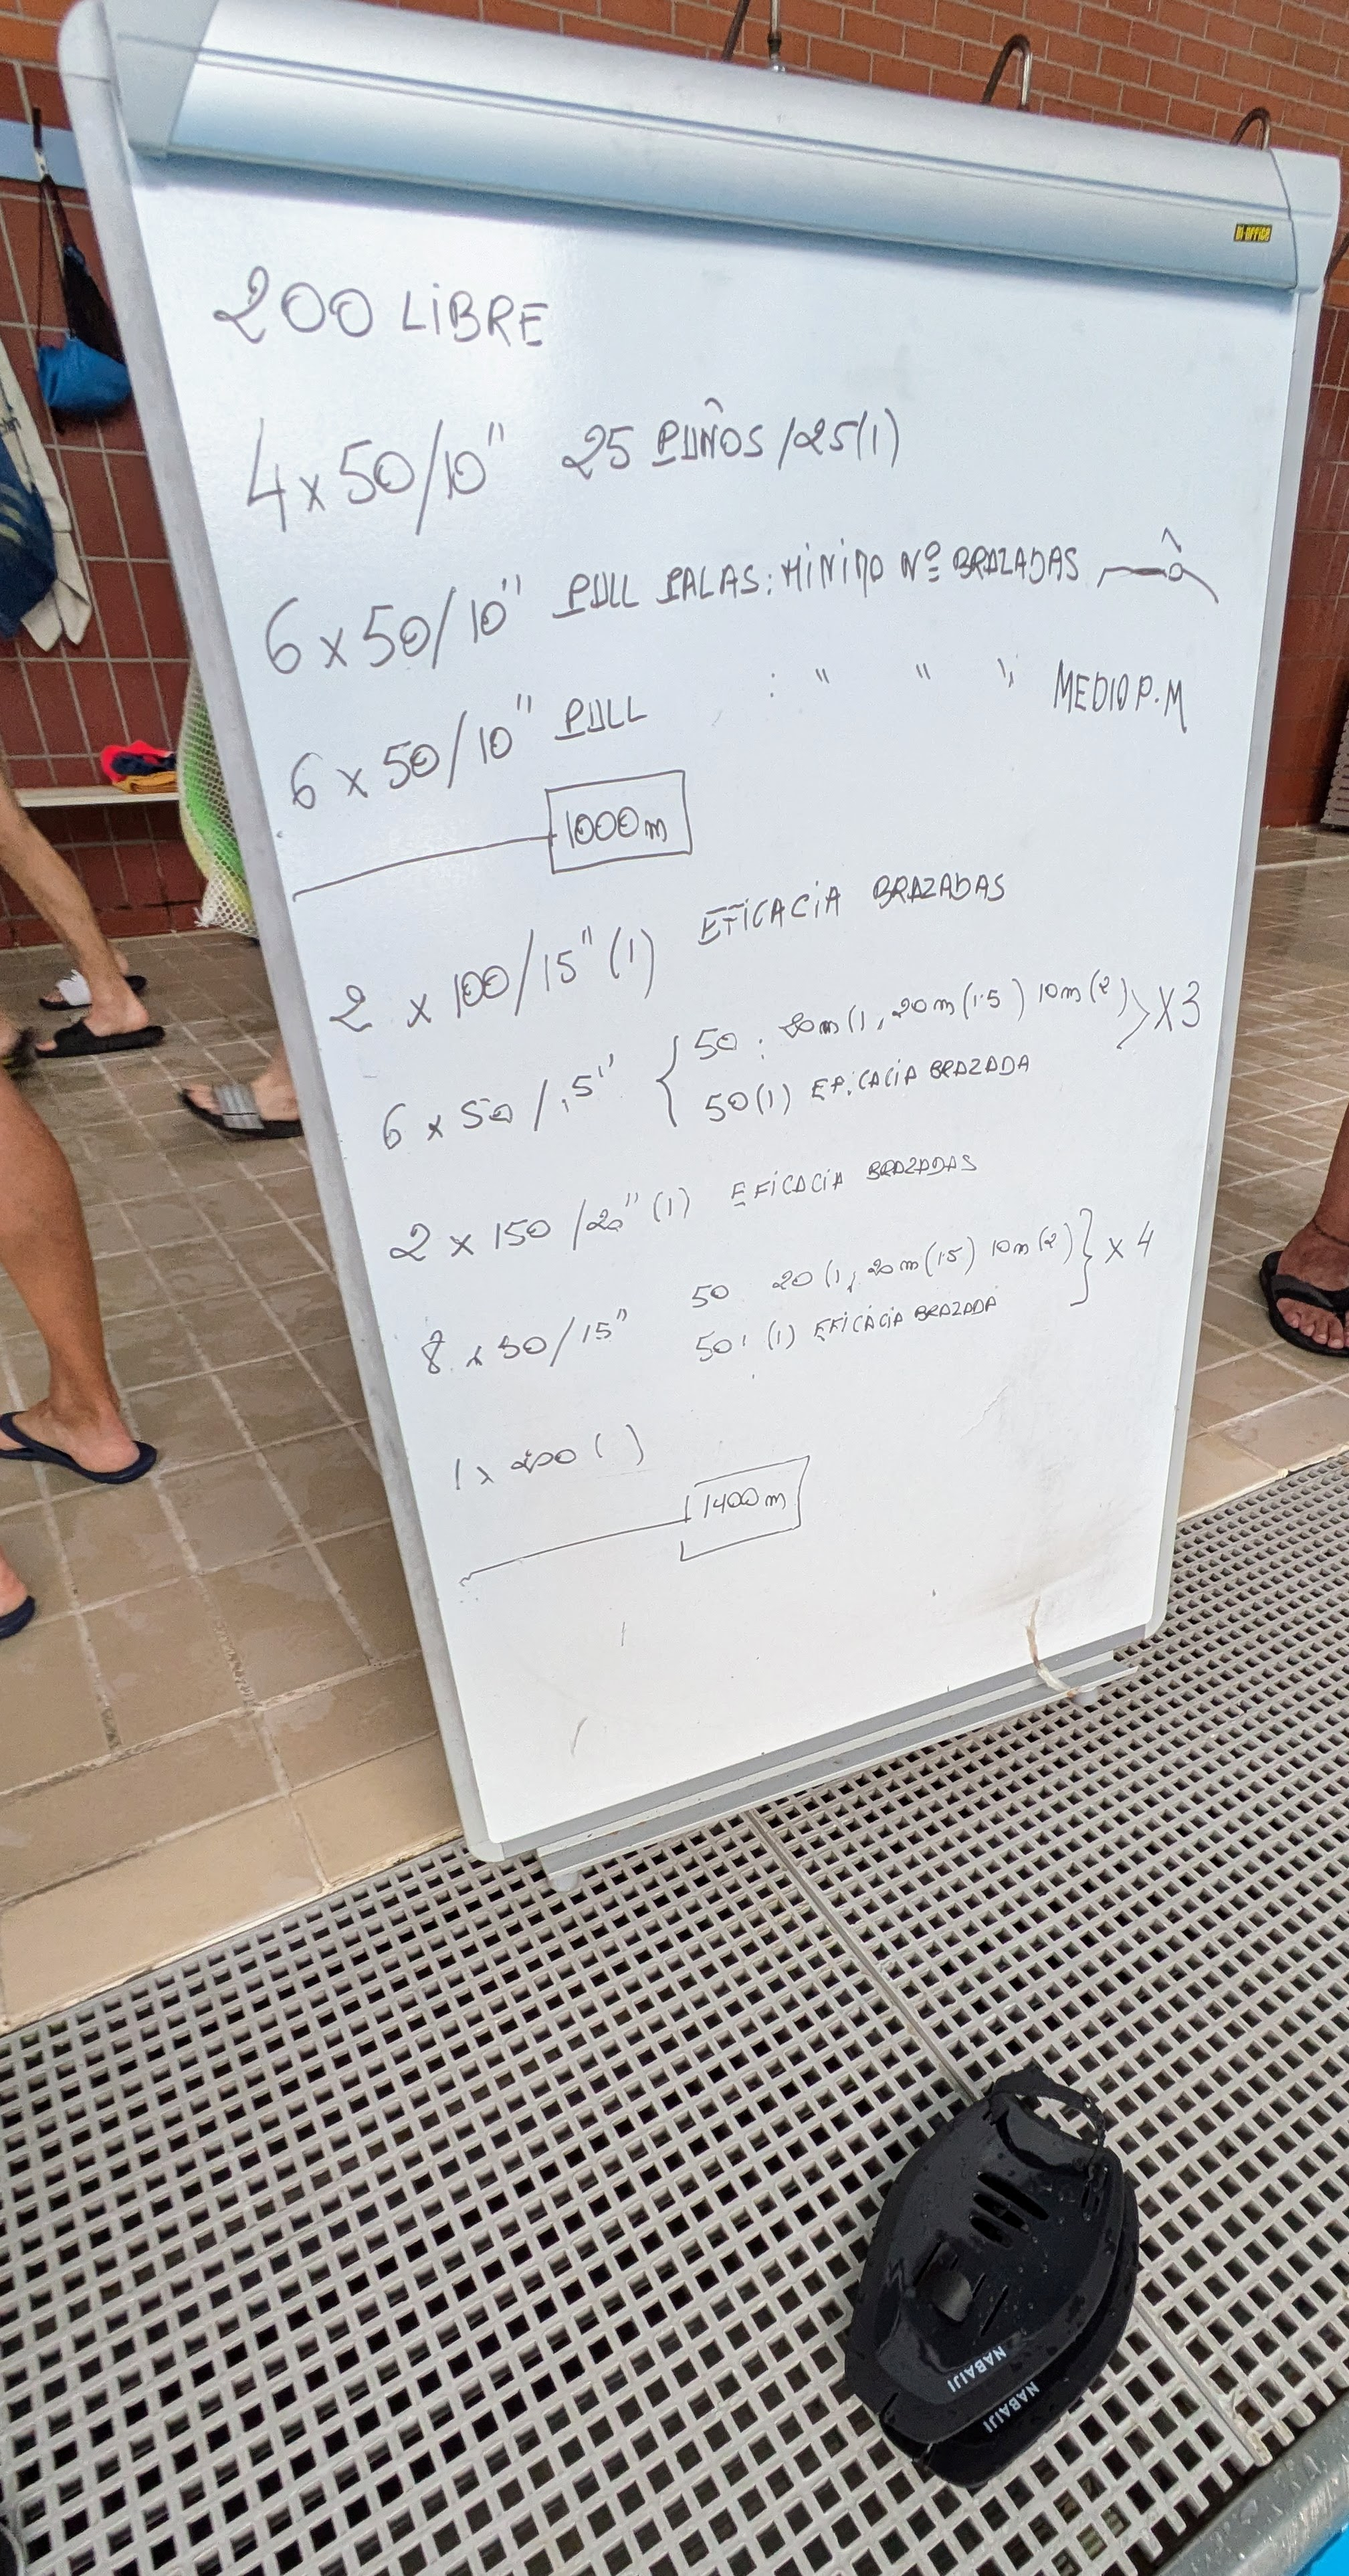 Bi-OFFiCE
200 LiBRE
4 x 50/10" 25 PUÑOS /25(1)
6 x 50/10" PULL PALAS: MiNiMO Nº BRAZADAS
6 x 50/10" PULL : " " " MEDIO P.M
1000m
2 x 100/15" (1) EFiCACiA BRAZADAS
6 x 50/15" { 50 : 20m(1, 20m(1.5) 10m(2) } X3
50(1) EFiCACiA BRAZADA
2 x 150/20" (1) EFiCACiA BRAZADAS
8 x 50/15" 50 20(1, 20m(1.5) 10m(2) } x 4
50: (1) EFiCACiA BRAZADA
1 x 200 ( )
1400m
NABAIJI
NABAIJI